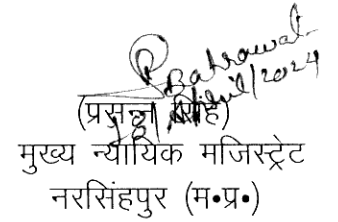 (प्रसन्न सिंह)
मुख्य न्यायिक मजिस्ट्रेट
नरसिंहपुर (म॰प्र॰)